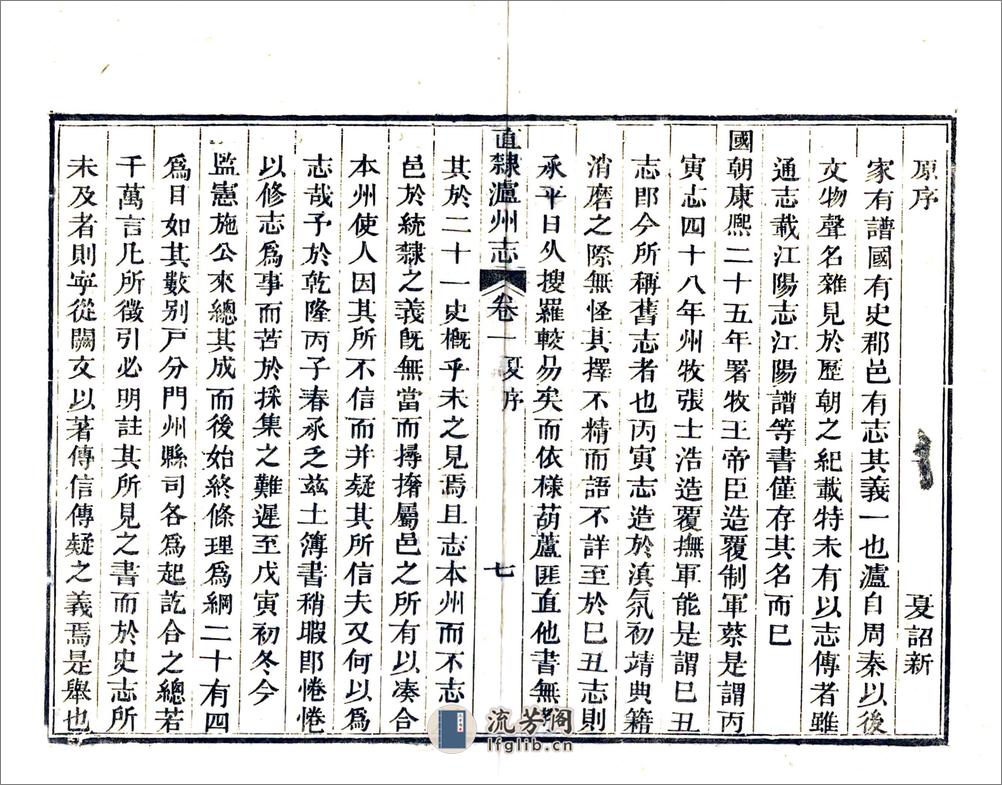 原序 夏詔新
家有譜國有史郡邑有志其義一也瀘自周秦以後
文物聲名雜見於歷朝之紀載特未有以志傳者雖
通志載江陽志江陽譜等書僅存其名而已
國朝康熙二十五年署牧王帝臣造覆制軍蔡是謂丙
寅志四十八年州牧張士浩造覆撫軍能是謂已丑
志即今所稱舊志者也丙寅志造於滇氛初靖典籍
消磨之際無怪其擇不精而語不詳至於已丑志則
承平日久搜羅較易矣而依樣葫蘆匪直他書無
直隸瀘州志 卷一 夏序 七
其於二十一史概乎未之見焉且志本州而不志
邑於統隸之義既無當而撏撦屬邑之所有以湊合
本州使人因其所不信而并疑其所信夫又何以爲
志哉予於乾隆丙子春承乏茲土簿書稍暇即惓惓
以修志爲事而苦於採集之難遲至戊寅初冬今
監憲施公來總其成而後始終條理爲綱二十有四
爲目如其數别戸分門州縣司各爲起訖合之總若
千萬言凡所徵引必明註其所見之書而於史志所
未及者則寧從闕文以著傳信傳疑之義焉是舉也
流芳閣
lfglib.cn